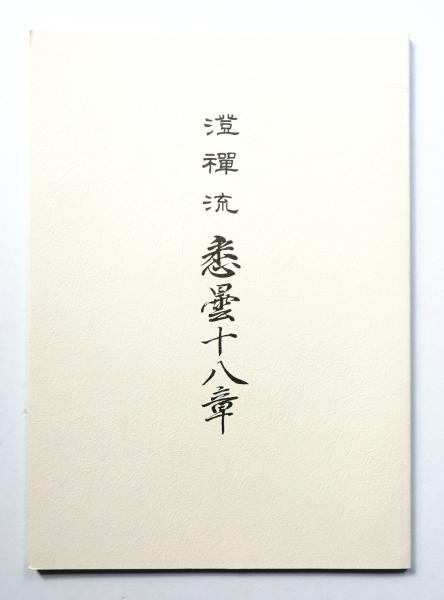 澄禪流 悉曇十八章